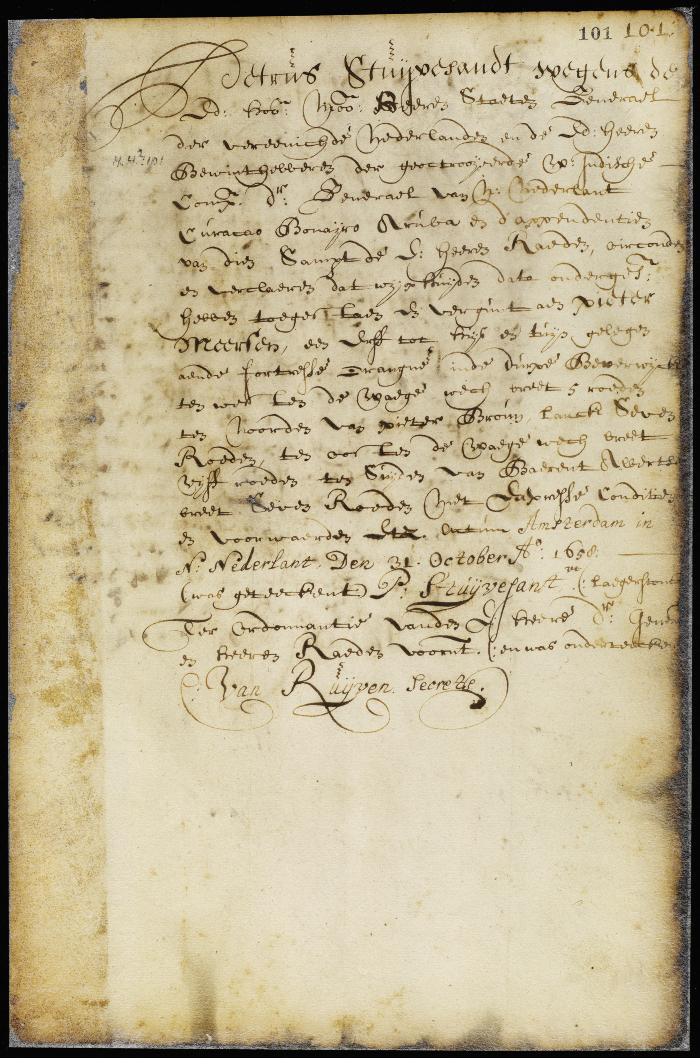 101 101.
Petrus Stuijvesandt wegens de
Ed: hog: Moo: Heeren Staeten Generael
der vereenichde Nederlanden en de Ed: heeren
Bewinthebberen der geoctroijeerde W: Indische
Comp: dr: Generael van N: Nederlant
Curacao Bonayro Aruba en d'appendentien
van dien Sampt de E: heeren Raeden, oirconden
en verclaeren dat wij op huijden date ondergesz:
hebben toegestaen en vergunt aen Pieter
Meersen, een Erff tot huijs en tuijn gelegen
aende fortresse orangne inde durpe Beverwyck
ten west ten de Waege wech breet 5 roeden
ten Noorden van Pieter Broun, lanck Seven
Roeden, ten oosten de Waege wech breet
vijff roeden ten Suijden van Baerent Albertsz
breet Seven Roeden Met Expresse Conditien
en voorwaerden Etc. Actum Amsterdam in
N: Nederlant. Den 31. October Ao: 1658.
(was geteeckent) P: Stuijvesant (: laegerstont
Ter Ordonnantie vanden E heere dr: Gener
en heeren Raeden voornt. (: en was onderteecken
C: Van Ruijven. Secrets.